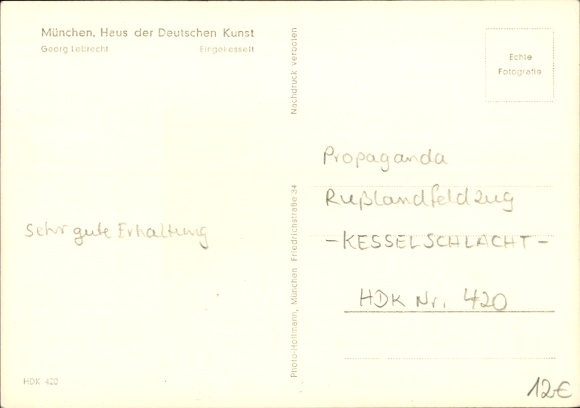 München, Haus der Deutschen Kunst
Georg Lebrecht Eingekesselt
Nachdruck verboten
Echte
Fotografie
Propaganda
Rußlandfeldzug
-KESSELSCHLACHT-
HDK Nr. 420
Sehr gute Erhaltung
Photo-Hoffmann, München, Friedrichstraße 34
HDK 420
12€